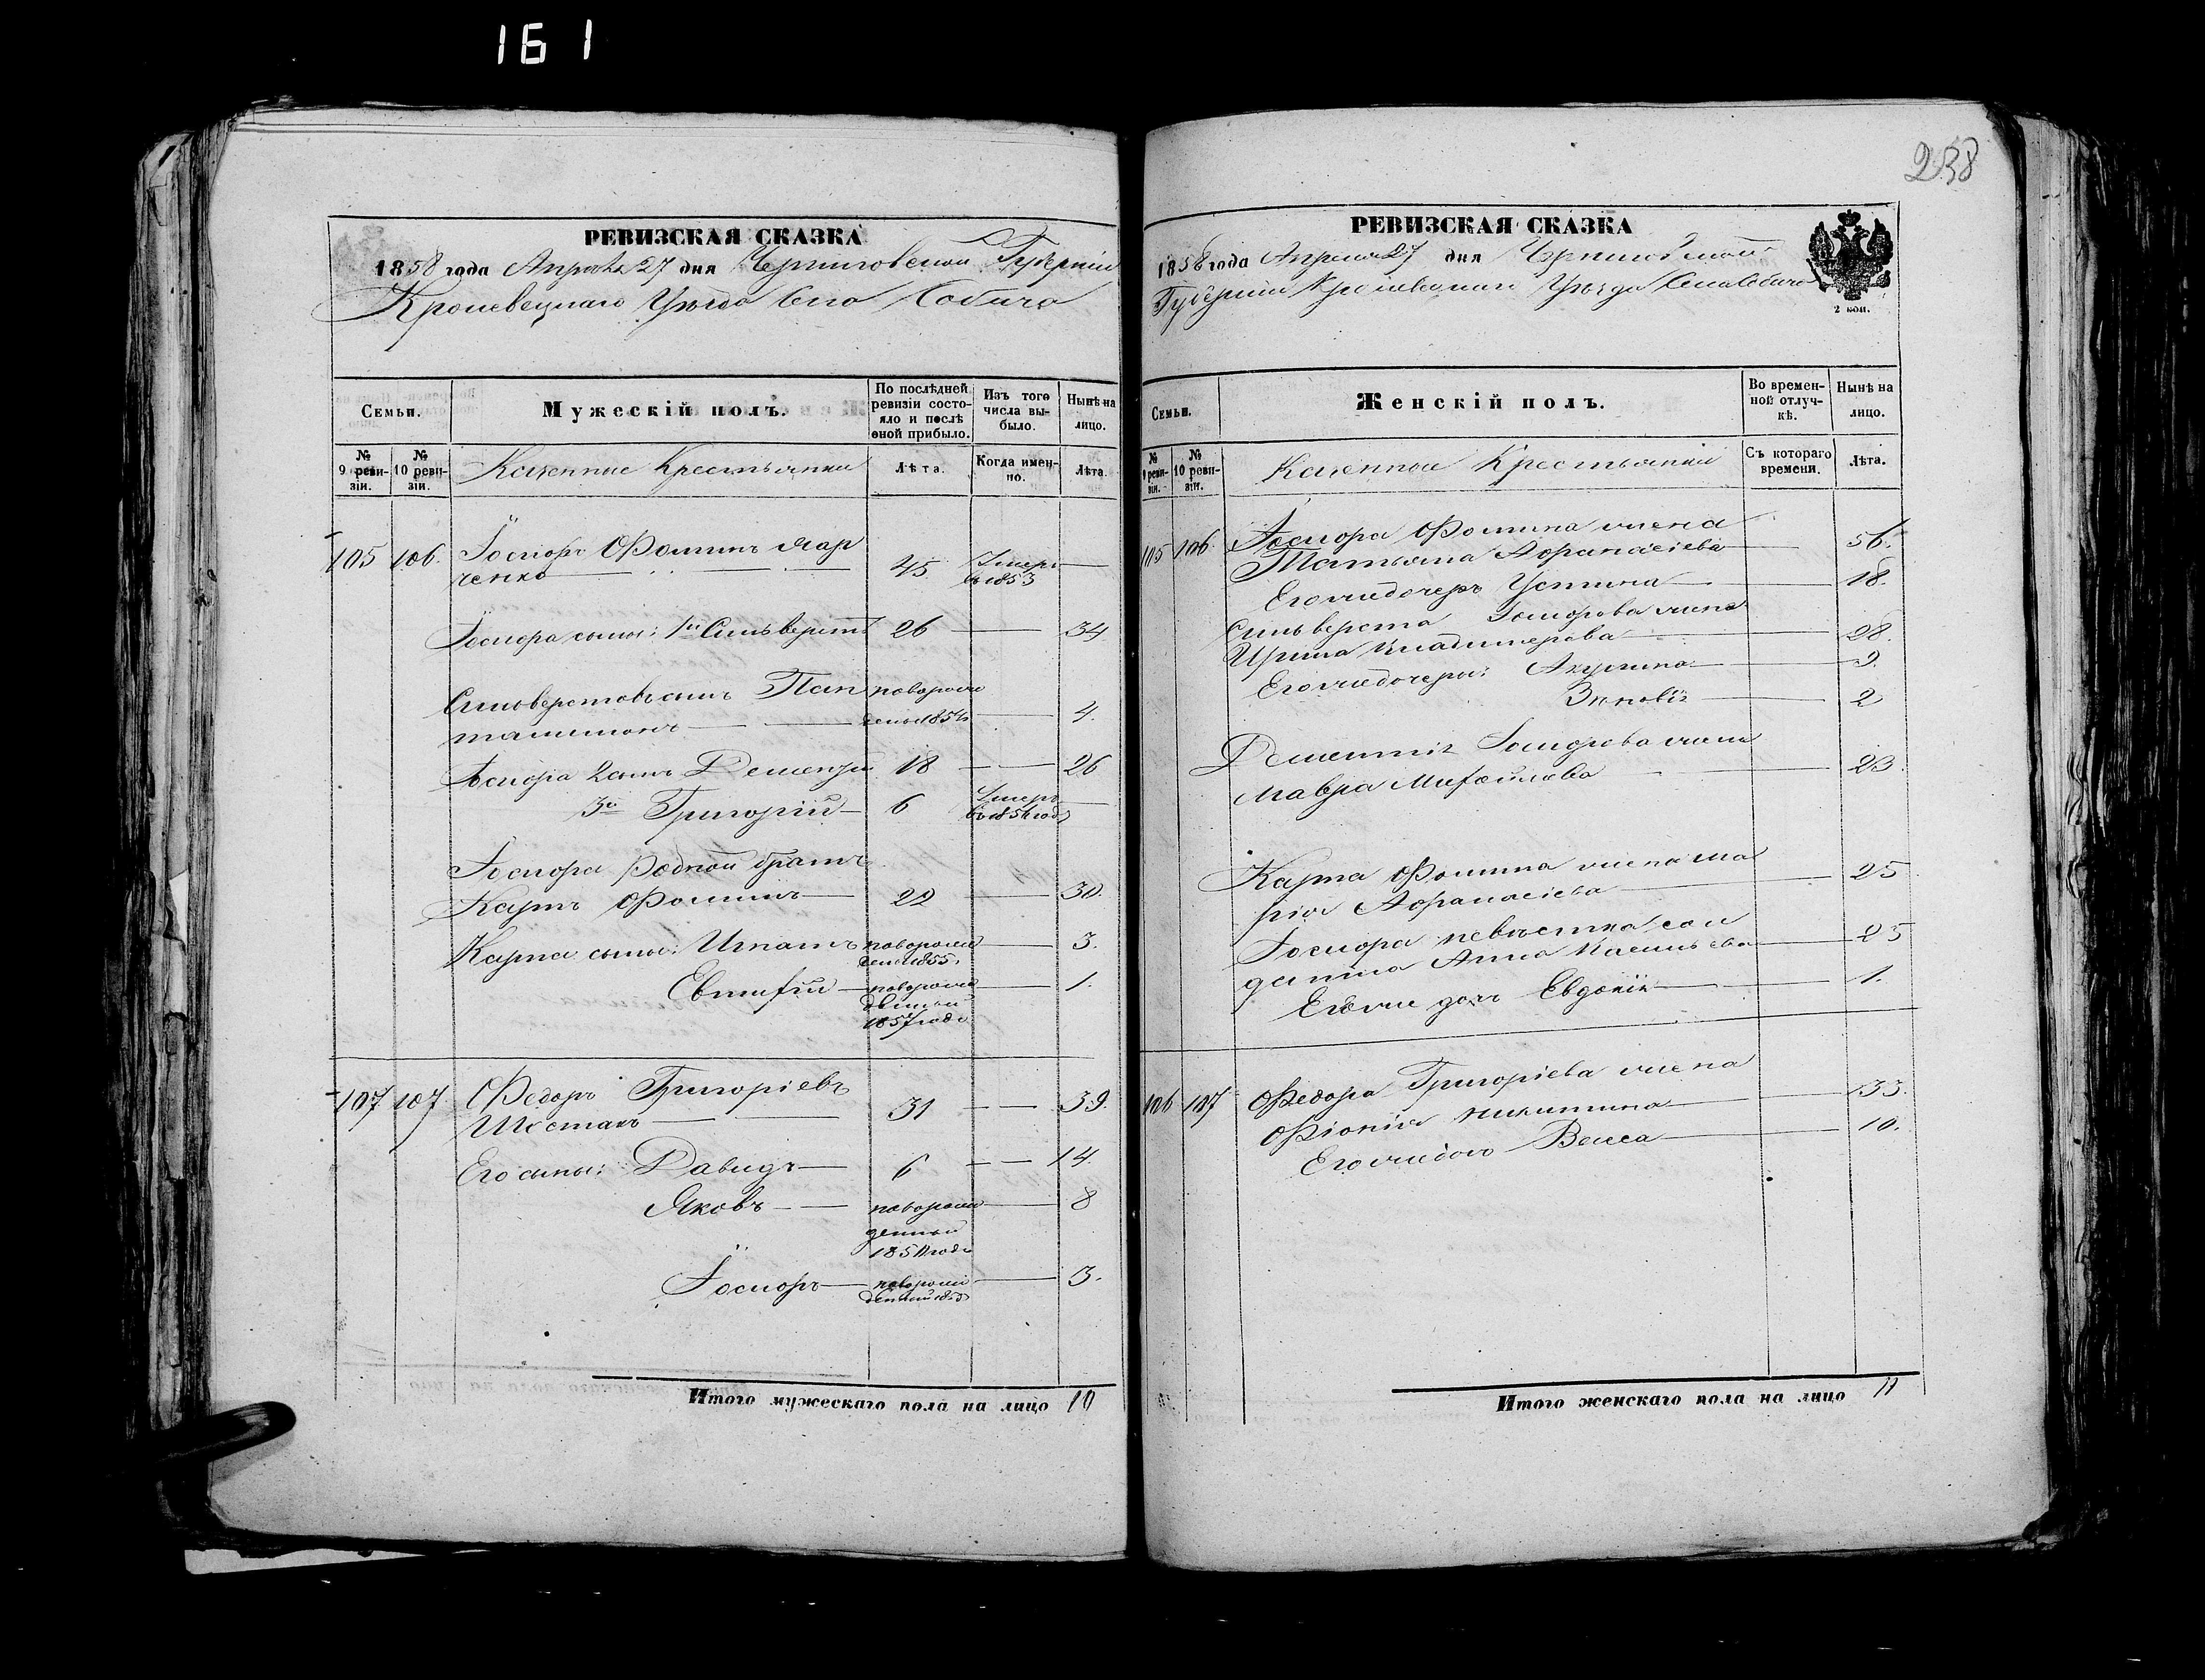 161
238
РЕВИЗСКАЯ СКАЗКА
1858 года Апреля 27 дня Черниговской Губерніи
Кролевецкаго Уѣзда Села Собича
Семьи.
Мужескій полъ.
По послѣдней ревизіи состояло и послѣ оной прибыло.
Изъ того числа выбыло.
Нынѣ на лицо.
№ 9 ревизіи.
№ 10 ревизіи.
Казенные Крестьянки
Лѣта.
Когда именно.
Лѣта.
105 106. Іосифъ Ѳоминъ Мар
ченко 45 Умеръ въ 1853
Іосифа сыны: 1й Сильверстъ 26 34
Сильверстовъ сынъ Пан новорож
талимонъ денъ 1854 4.
Іосифа 2 сынъ Дементій 18 26
3й Григорій 6 Умеръ въ 1854 годѣ
Іосифа родной братъ
Карпъ Фоминъ 22 30.
Карпа сыны: Игнатъ новорож денъ 1855 3.
Евтифій новорож денный 1857 года 1.
107 107 Федоръ Григоріевъ
Шестакъ 31 39.
Его сыны: Давидъ 6 14.
Яковъ новорож денный 1850 года 8
Іосифъ новорож денный 1855 3.
Итого мужескаго пола на лицо 10
РЕВИЗСКАЯ СКАЗКА
1858 года Апреля 27 дня Черниговской
Губерніи Кролевецкаго Уѣзда Села Собича
2 коп.
Семьи.
Женскій полъ.
Во временной отлучкѣ.
Нынѣ на лицо.
№ 9 ревизіи.
№ 10 ревизіи.
Казенные Крестьянки
Съ котораго времени.
Лѣта.
105 106. Іосифа Фомина жена
Татьяна Афанасіева 56.
Его же дочерь Устина 18.
Сильверста Іосифова жена
Ирина Владимерова 28.
Его же дочери: Акулина 9.
Зиновія 2
Дементія Іосифова жена
Мавра Михайлова 23.
Карпа Фомина жена Ма
рія Афанасіева 25
Іосифа невѣстка сол
датка Анна Васильева 25
Его же дочь Евдокія 1.
106 107 Федора Григоріева жена
Фіонія Никитина 33.
Его же дочь Васса 10.
Итого женскаго пола на лицо 11